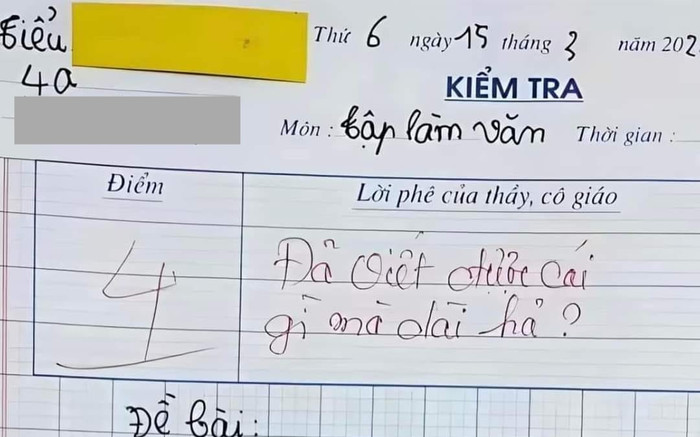 Tiểu
Thứ 6 ngày 15 tháng 3 năm 202
4a
KIỂM TRA
Môn : Tập làm văn Thời gian :
Điểm
Lời phê của thầy, cô giáo
4
Đã viết được cái
gì mà dài hả ?
Đề bài: